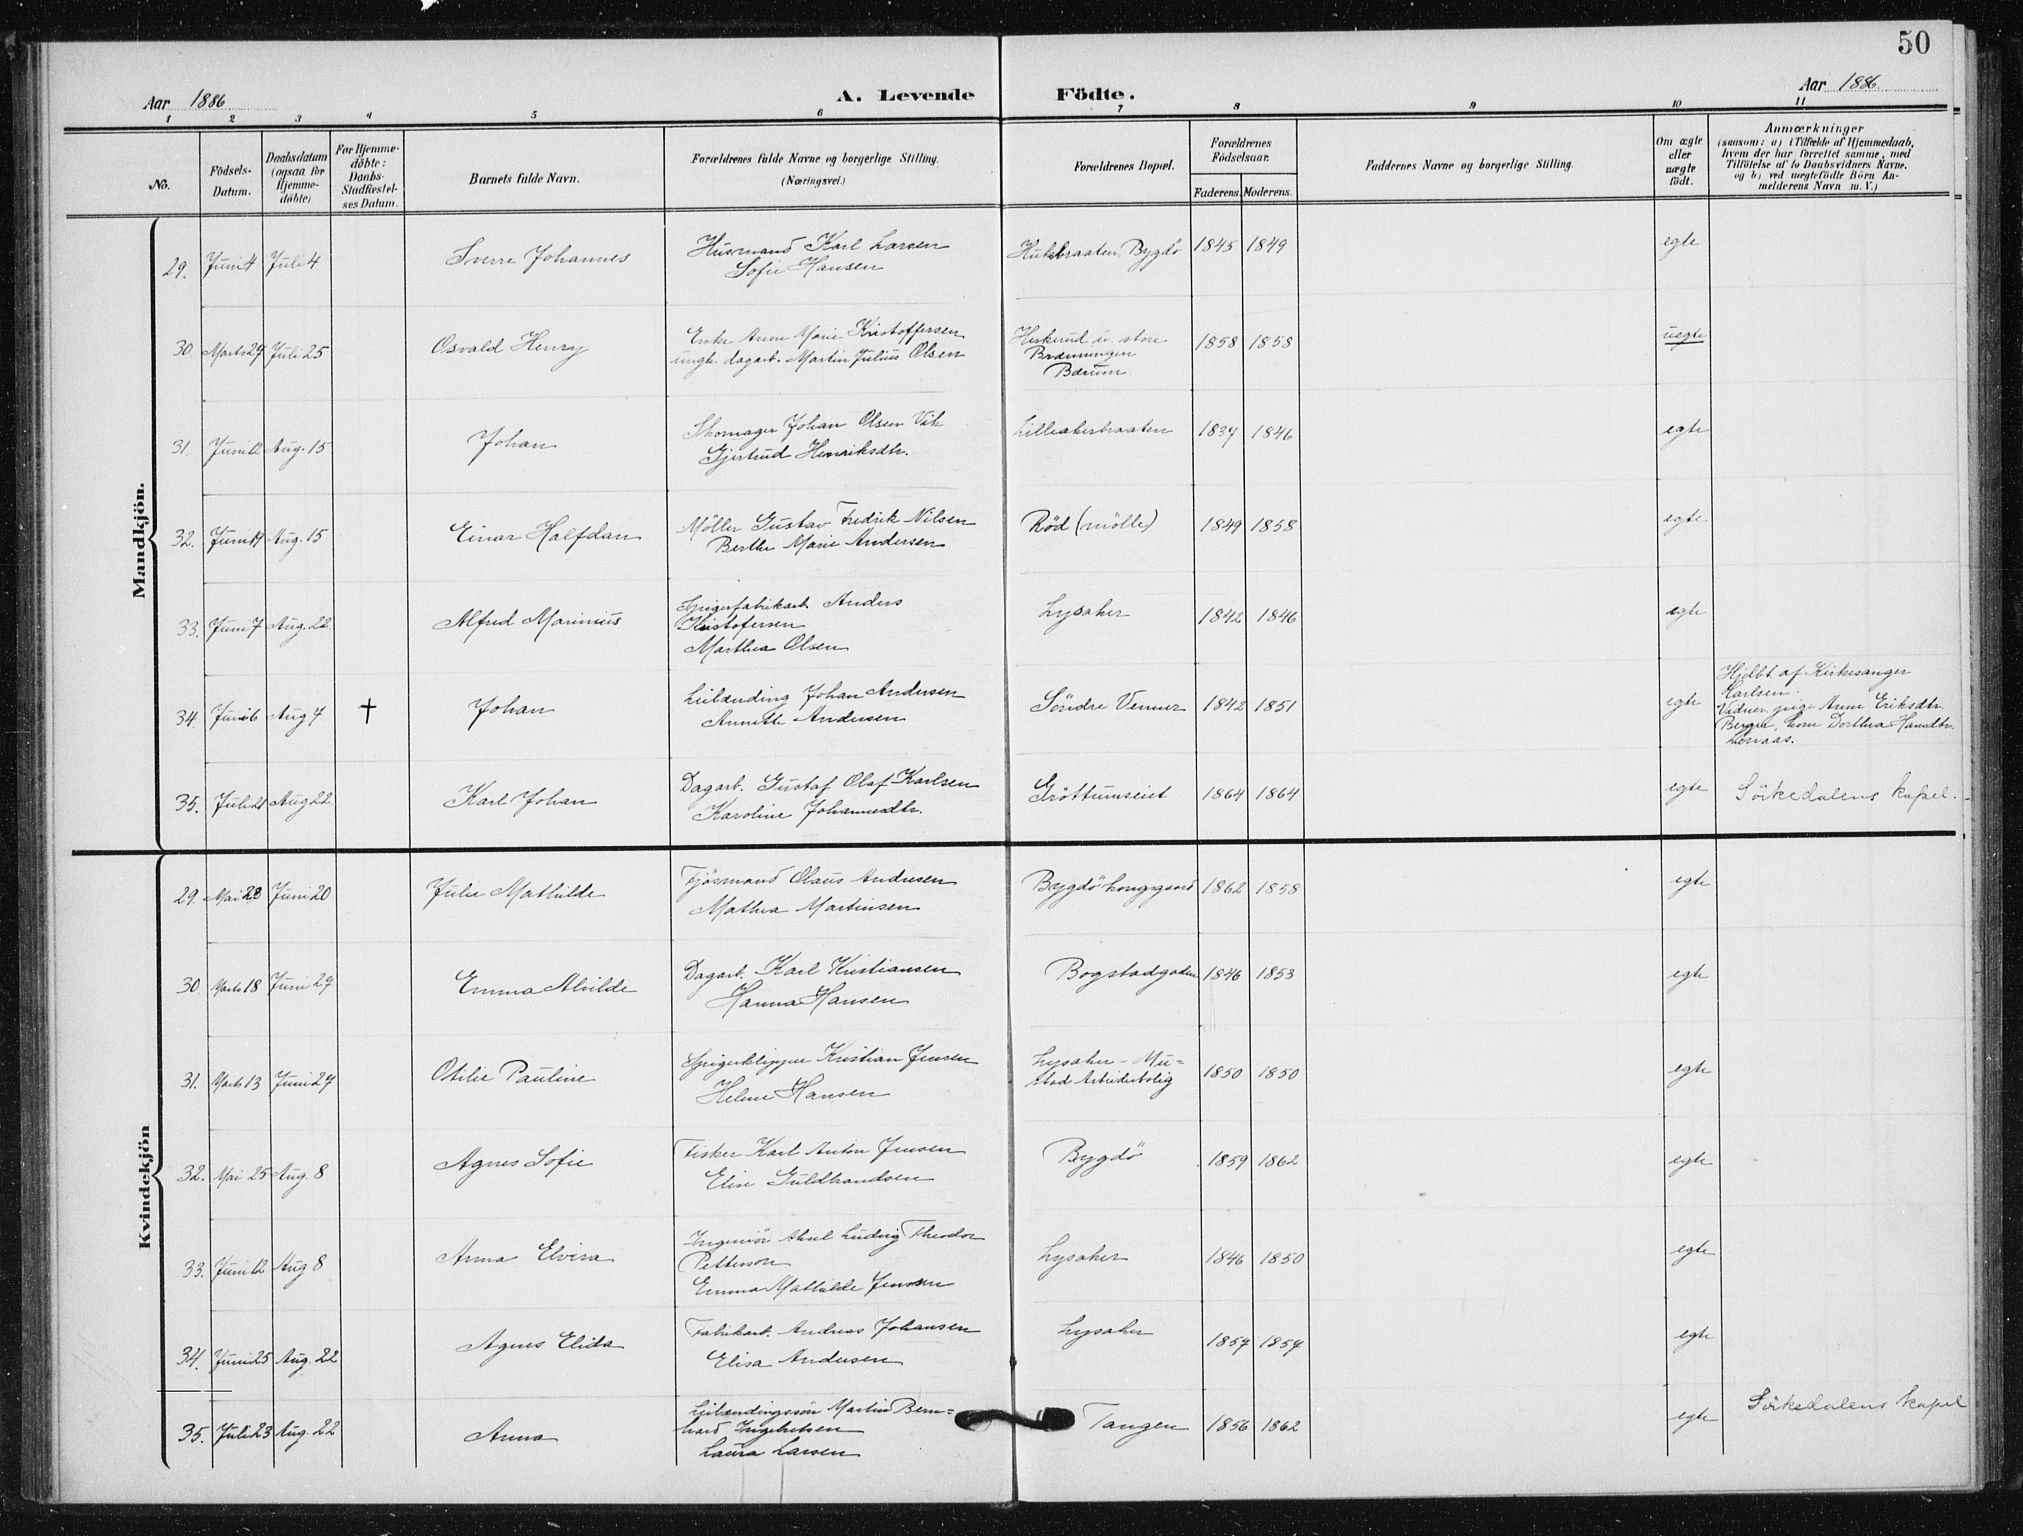 50
Aar 1886
A. Levende Födte.
Aar 1886
1 2 3 4 5 6 7 8 9 10 11
No.
Födsels-Datum.
Daabsdatum (ogsaa for Hjemme-döbte)
For Hjemme-döbte: Daabs-Stadfæstel-ses Datum.
Barnets fulde Navn.
Forældrenes fulde Navne og borgerlige Stilling.
(Næringsvei.)
Forældrenes Bopæl.
Forældrenes Födselsaar.
Faderens. Moderens.
Faddernes Navne og borgerlige Stilling.
Om ægte eller uægte födt.
Anmærkninger
(saasom: a) i Tilfælde af Hjemmedaab,
hvem der har forrettet samme, med
Tilföielse af to Daabsvidners Navne.
og b) ved uægtefödte Börn An-
melderens Navn m. V.)
Mandkjön.
29. Juni 4 Juli 4 Sverre Johannes Husmand Karl Larsen Hukbraaten, Bygdö 1845 1849 egte
Sofie Hansen
30. Marts 27 Juli 25 Osvald Henry Enke Anne Marie Kristoffersen Herkerud u. store 1858 1858 uegte
ungk. dagarb. Martin Julius Olsen Brænningen
Bærum
31. Juni 12 Aug. 15 Johan Skomager Johan Olsen Vik Lilleakerbraaten 1837 1846 egte
Gjertrud Henriksdtr.
32. Juni 14 Aug. 15 Einar Halfdan Möller Gustav Fredrik Nilsen Röd (mölle) 1849 1858 egte
Berthe Marie Andersen
33. Juni 7 Aug. 22 Alfred Marinius Spigerfabrikarb. Anders Lysaker 1842 1846 egte
Kristofersen
Marthea Olsen
34. Juni 6 Aug 7 † Johan Leilænding Johan Andersen Söndre Venner 1842 1851 egte
Annette Andersen
Hjdbt. af Kirkesanger
Karlsen.
Vidner, pige Anne Eriksdtr.
Berger, kone Dorthea Hansdtr.
Lövaas.
35. Juli 21 Aug 22 Karl Johan Dagarb. Gustaf Olaf Karlsen Gröttumseiet 1864 1864 egte Sörkedalens kapel.
Karoline Johannesdtr.
Kvindekjön
29. Mai 23 Juni 20 Julie Mathilde Fjösmand Olaus Andresen Bygdö kongsgaard 1862 1858 egte
Mathea Martinsen
30. Marts 18 Juni 27 Emma Alvilde Dagarb. Karl Kristiansen Bogstadgaden 1846 1853 egte
Hanna Hansen
31. Marts 13 Juni 27 Otilie Pauline Spigerklipper Kristian Jensen Lysaker - Mu= 1850 1850 egte
Helene Hansen stad Arbeiderbolig
32. Mai 25 Aug. 8 Agnes Sofie Fisker Karl Anton Jensen Bygdö 1859 1862 egte
Elise Guldbrandsen
33. Juni 12 Aug 8 Anna Elvira Ingeniör Aksel Ludvig Theodor Lysaker 1846 1850 egte
Petterson
Emma Mathilde Jensen
34. Juni 25 Aug. 22 Agnes Elida Fabrikarb. Andreas Johansen Lysaker 1857 1857 egte
Elisa Andersen
35. Juli 23 Aug. 22 Anna Leilændingssön Martin Bern= Tangen 1856 1862 egte Sörkedalens kapel
hard Ingebretsen
Laura Larsen